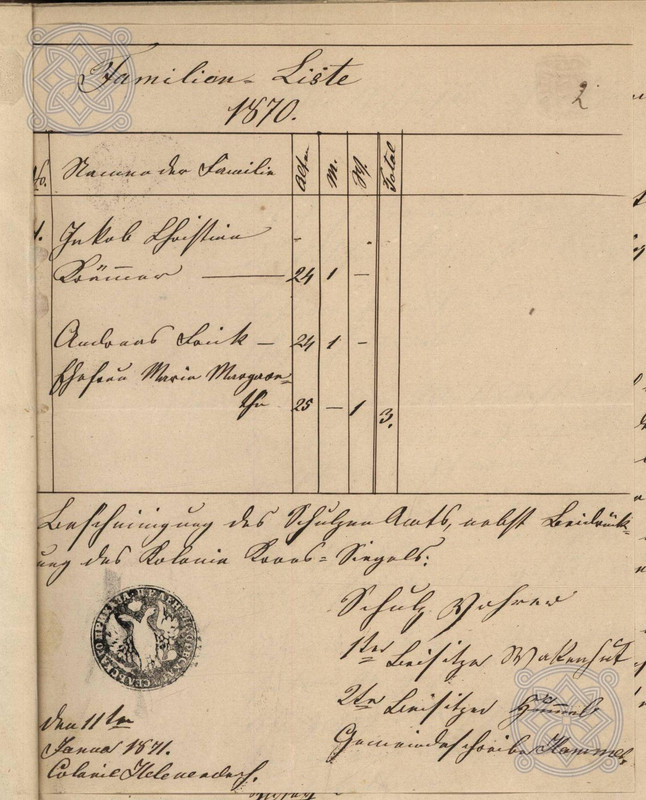 Familien-Liste
1870.
2
No. Namen der Familie Alter M. W. Total
1. Jakob Christian
Krämmer — 24 1 —
Andreas Frick — 24 1 —
Ehefrau Maria Margare-
tha 25 — 1 3.
Bescheinigung des Schulzen Amts, nebst Beidrück-
ung des Kolonie Krons-Siegels:
Schulz Vohrer
1ter Beisitzer Wakenhut
2ter Beisitzer
Gemeindeschreiber Hummel
den 11ten
Januar 1871.
Colonie Helenendorf.